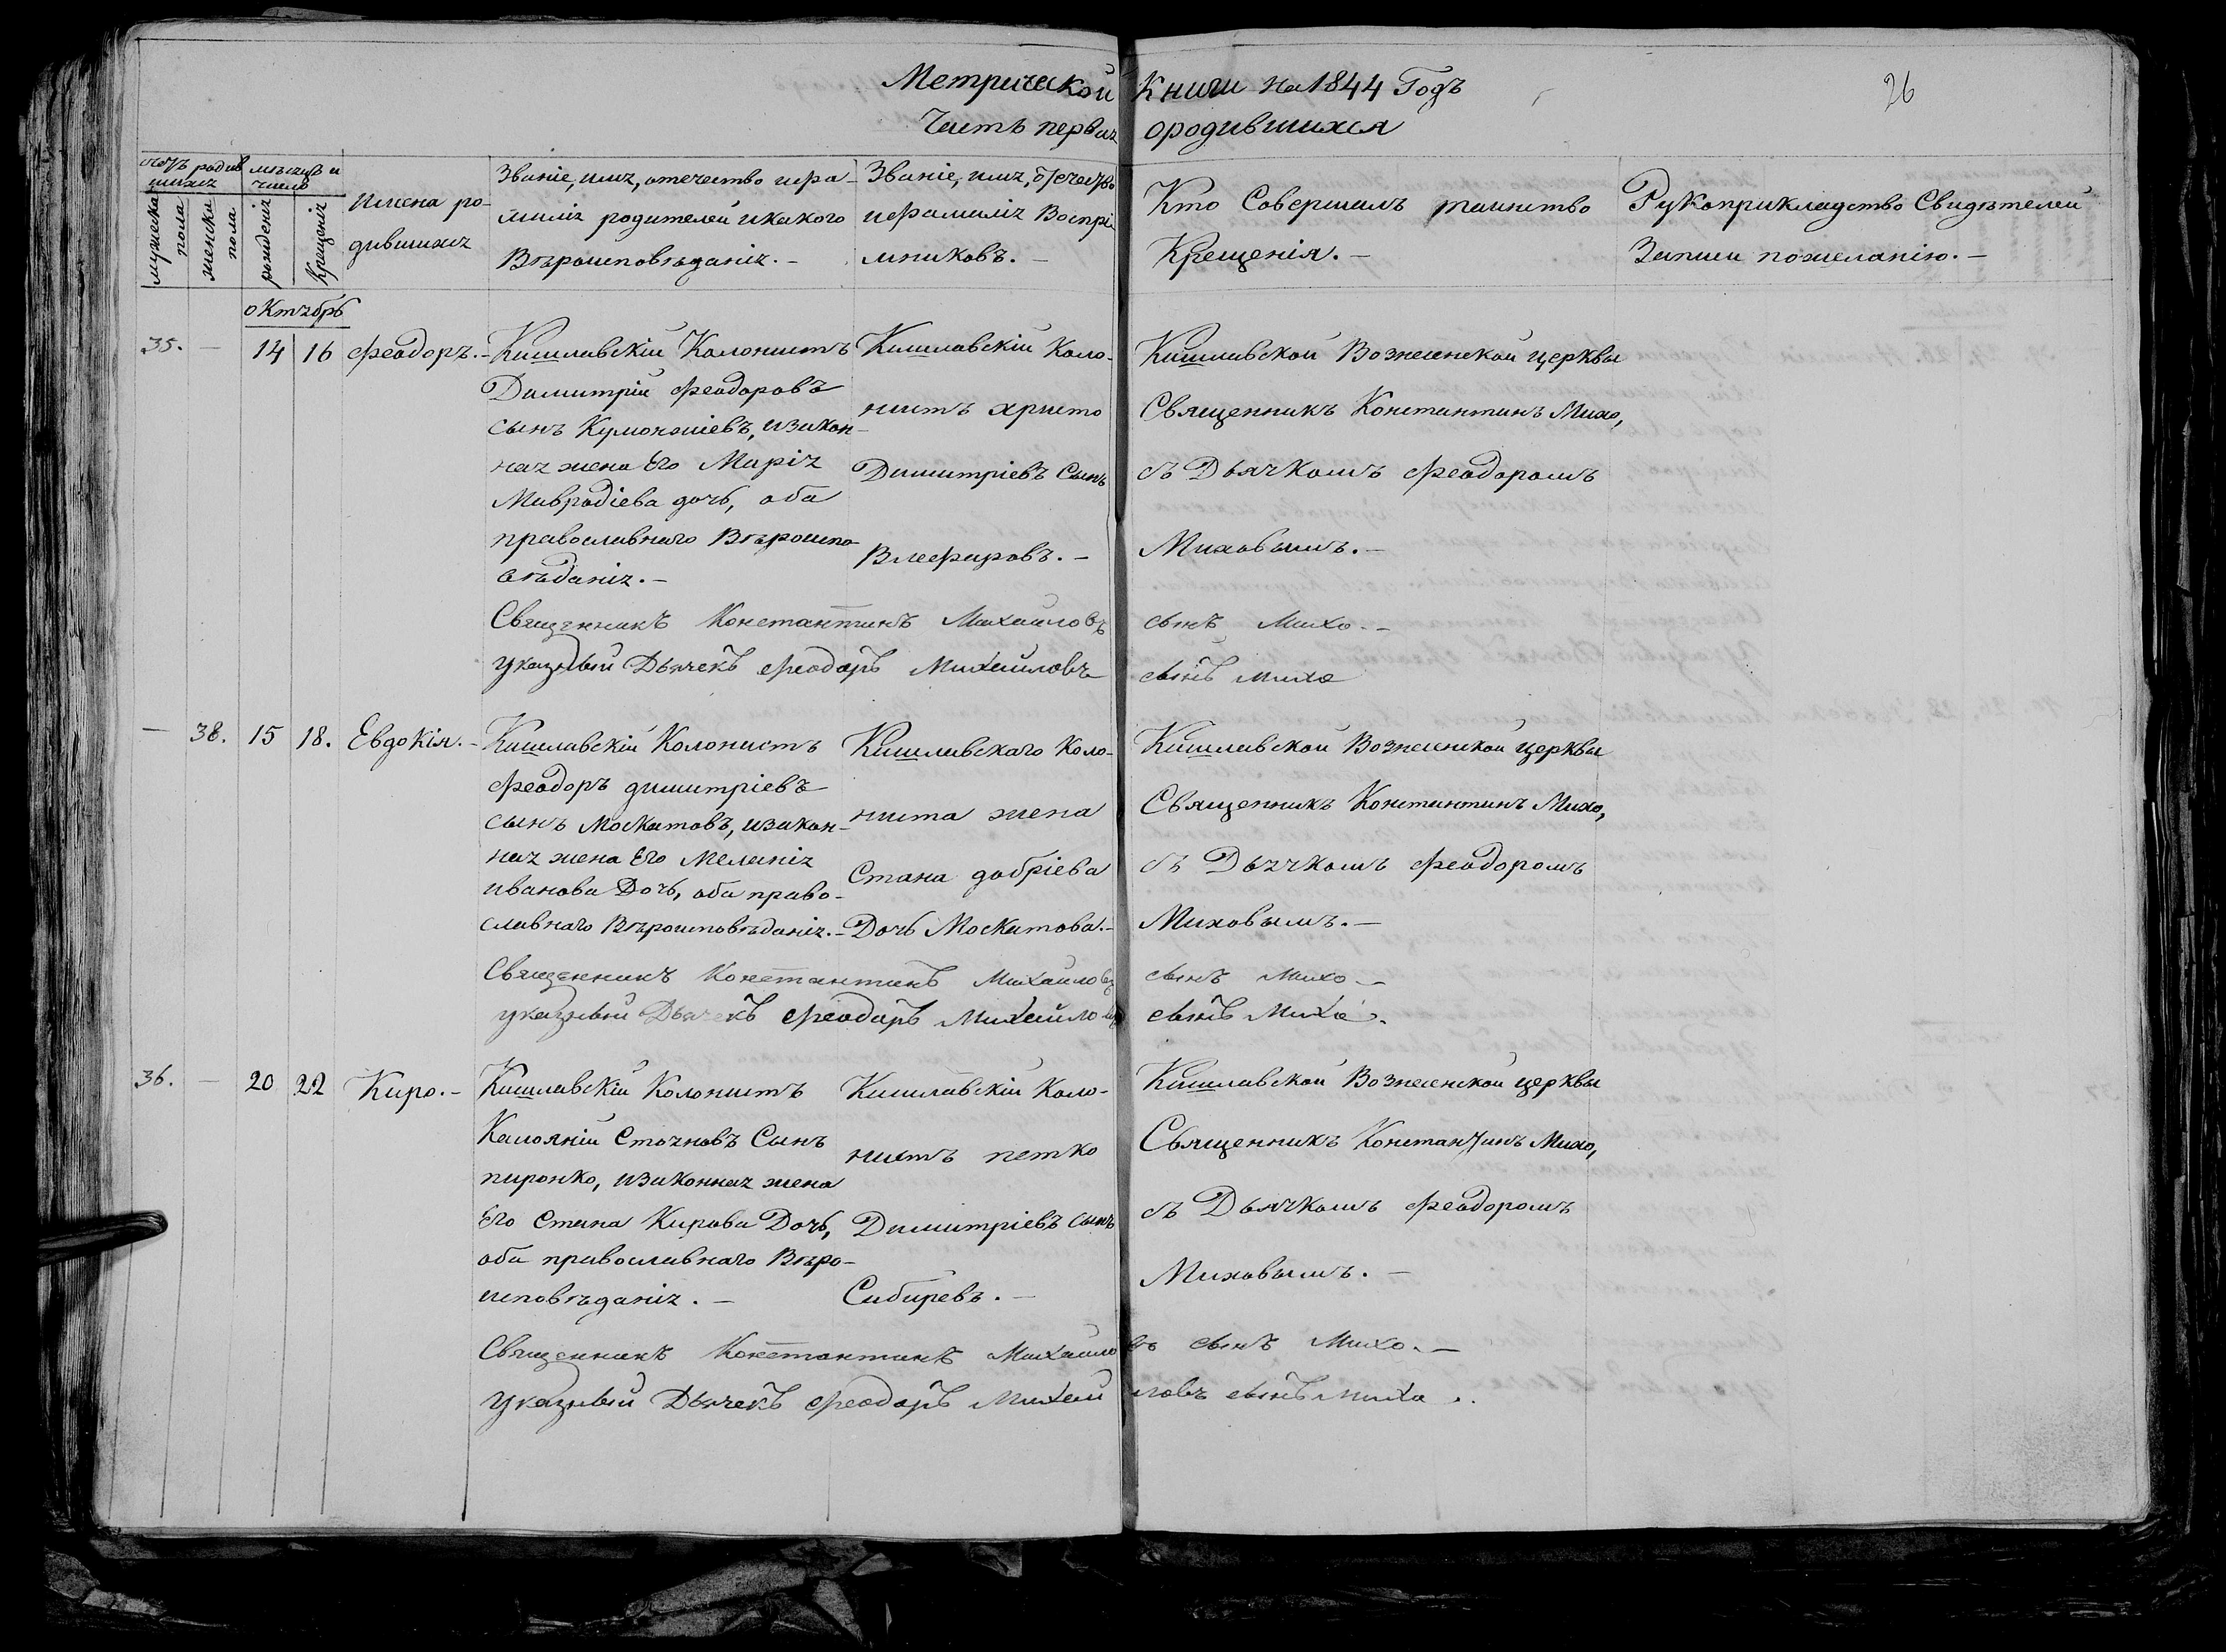 Метрической Книги на 1844 Годъ
26
Часть первая ородившихся
счетъ родив
шихся
мѣсяцъ и
число
мужеска
пола
женска
пола
рожденія
Крещенія
Имена ро-
дившихся
Званіе, имя, отечество ифа-
милія родителей икакого
Вѣроисповѣданія.-
Званіе, имя, отечество
ифамилія Воспрі
мниковъ.-
Кто Совершалъ таинство
Крещенія.-
Рукоприкладство Свидѣтелей
Записи пожеланію.-
октябрь
35. - 14 16 Феодоръ.-
Кишлавскій Колонистъ
Димитрій Феодоровъ
сынъ, изакон-
ная жена Его Марія
Мавродіева дочь, оба
православнаго Вѣроиспо-
вѣданія.-
Кишлавскій Коло-
нистъ христо
Димитріевъ Сынъ
Кишлавской Вознесенской церквы
Священникъ Константинъ Михо,
съ Дьячкомъ Феодоромъ
Миховымъ.-
Священникъ Константинъ Михаиловъ сынъ Михо.-
указный Дьячекъ Феодоръ Михайловъ сынъ Михо
- 38. 15 18. Евдокія.-
Кишлавскій Колонистъ
Феодоръ димитріевъ
сынъ Москатовъ, изакон-
ная жена Его Меланія
иванова Дочь, оба право-
славнаго Вѣроисповѣданія.-
Кишлавскаго Коло-
ниста жена
Стана добріева
Дочь Москатова.-
Кишлавской Вознесенской церквы
Священникъ Константинъ Михо,
съ Дьячкомъ Феодоромъ
Миховымъ.-
Священникъ Константинъ Михаиловъ сынъ Михо-
указный Дьячекъ Феодоръ Михайловъ сынъ Михо.
36. - 20 22 Киро.-
Кишлавскій Колонистъ
Камояній Стояновъ Сынъ
пиронко, изаконная жена
Его Стана Кирова Дочь,
оба православнаго Вѣро-
исповѣданія.-
Кишлавскій Коло-
нистъ петко
Димитріевъ сынъ
Сибиревъ.-
Кишлавской Вознесенской церквы
Священникъ Константинъ Михо,
съ Дьячкомъ Феодоромъ
Миховымъ.-
Священникъ Константинъ Михаиловъ сынъ Михо.-
указный Дьячекъ Феодоръ Михайловъ сынъ Михо.